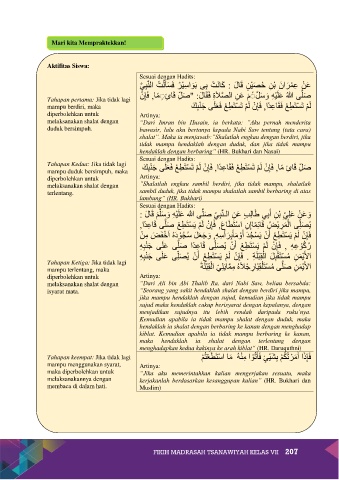 Mari kita Mempraktekkan!
Aktifitas Siswa:
Sesuai dengan Hadits:
Tahapan pertama: Jika tidak lagi
mampu berdiri, maka
diperbolehkan untuk
melaksanakan shalat dengan
duduk bersimpuh.
Artinya:
"Dari Imran bin Husain, ia berkata: "Aku pernah menderita
bawasir, lalu aku bertanya kepada Nabi Saw tentang (tata cara)
shalat". Maka ia menjawab: "Shalatlah engkau dengan berdiri, jika
tidak mampu hendaklah dengan duduk, dan jika tidak mampu
hendaklah dengan berbaring". (HR. Bukhari dan Nasai)
Sesuai dengan Hadits:
Tahapan Kedua: Jika tidak lagi
mampu duduk bersimpuh, maka
diperbolehkan untuk
melaksanakan shalat dengan
terlentang.
صَلِّ قَائِمًا، فَإِنْ لَمْ تَسْتَطِعْ فَقَاعِدًا، فَإِنْ لَمْ تَسْتَطِعْ فَعَلَى جَنْبِكَ
Artinya:
"Shalatlah engkau sambil berdiri, jika tidak mampu, shalatlah
sambil duduk, jika tidak mampu shalatlah sambil berbaring di atas
lambung" (HR. Bukhari)
Sesuai dengan Hadits:
Tahapan Ketiga: Jika tidak lagi
mampu terlentang, maka
diperbolehkan untuk
melaksanakan shalat dengan
isyarat mata.
Artinya:
"Dari Ali bin Abi Thalib Ra, dari Nabi Saw, beliau bersabda:
"Seorang yang sakit hendaklah shalat dengan berdiri jika mampu,
jika mampu hendaklah dengan sujud, kemudian jika tidak mampu
sujud maka hendaklah cukup berisyarat dengan kepalanya, dengan
menjadikan sujudnya itu lebih rendah daripada ruku'nya.
Kemudian apabila ia tidak mampu shalat dengan duduk, maka
hendaklah ia shalat dengan berbaring ke kanan dengan menghadap
kiblat. Kemudian apabila ia tidak mampu berbaring ke kanan,
maka hendaklah ia shalat dengan terlentang dengan
menghadapkan kedua kakinya ke arah kiblat" (HR. Daruquthni)
Tahapan keempat: Jika tidak lagi
mampu menggunakan syarat,
maka diperbolehkan untuk
melaksanakannya dengan
membaca di dalam hati.
فَإِذَا أَمَرْتُكُمْ بِشَيْءٍ فَأْتُوا مِنْهُ مَا اسْتَطَعْتُمْ
Artinya:
"Jika aku memerintahkan kalian mengerjakan sesuatu, maka
kerjakanlah berdasarkan kesanggupan kalian" (HR. Bukhari dan
Muslim)
FIKIH MADRASAH TSANAWIYAH KELAS VII 207